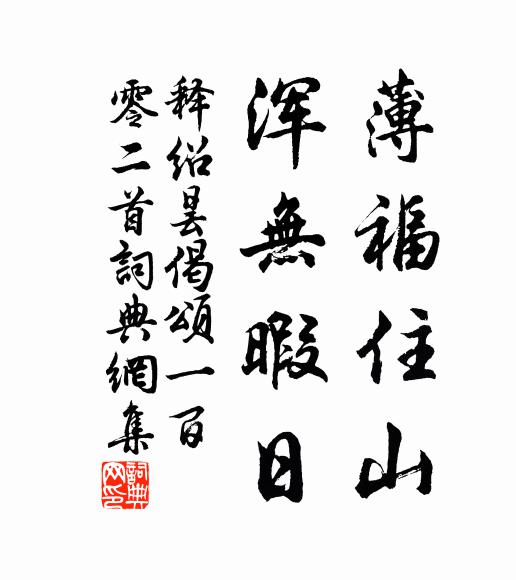 薄福住山
浑無暇日
释绍昙偈頌一百
零二首詞典網集
詞典网印